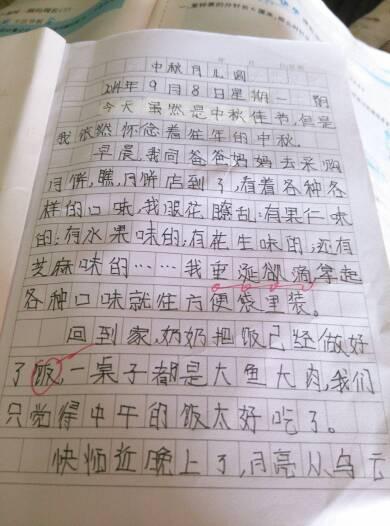 中秋月儿圆
2014年9月8日星期一 阴
今天虽然是中秋佳节,但是
我依然怀念着往年的中秋。
早晨,我同爸爸妈妈去采购
月饼,瞧,月饼店到了,有着各种各
样的口味,我眼花瞭乱:有果仁味
的;有水果味的;有花生味的;还有
芝麻味的……我垂涎欲滴拿起
各种口味就往方便袋里装。
回到家,奶奶把饭已经做好
了饭,一桌子都是大鱼大肉,我们
只觉得中午的饭太好吃了。
快临近晚上了,月亮从乌云